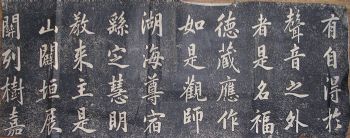 有自得於
聲音之外
者是名福
德藏應作
如是觀師
湖海尊宿
繇定慧明
敎來主是
山闢垣展
列樹嘉